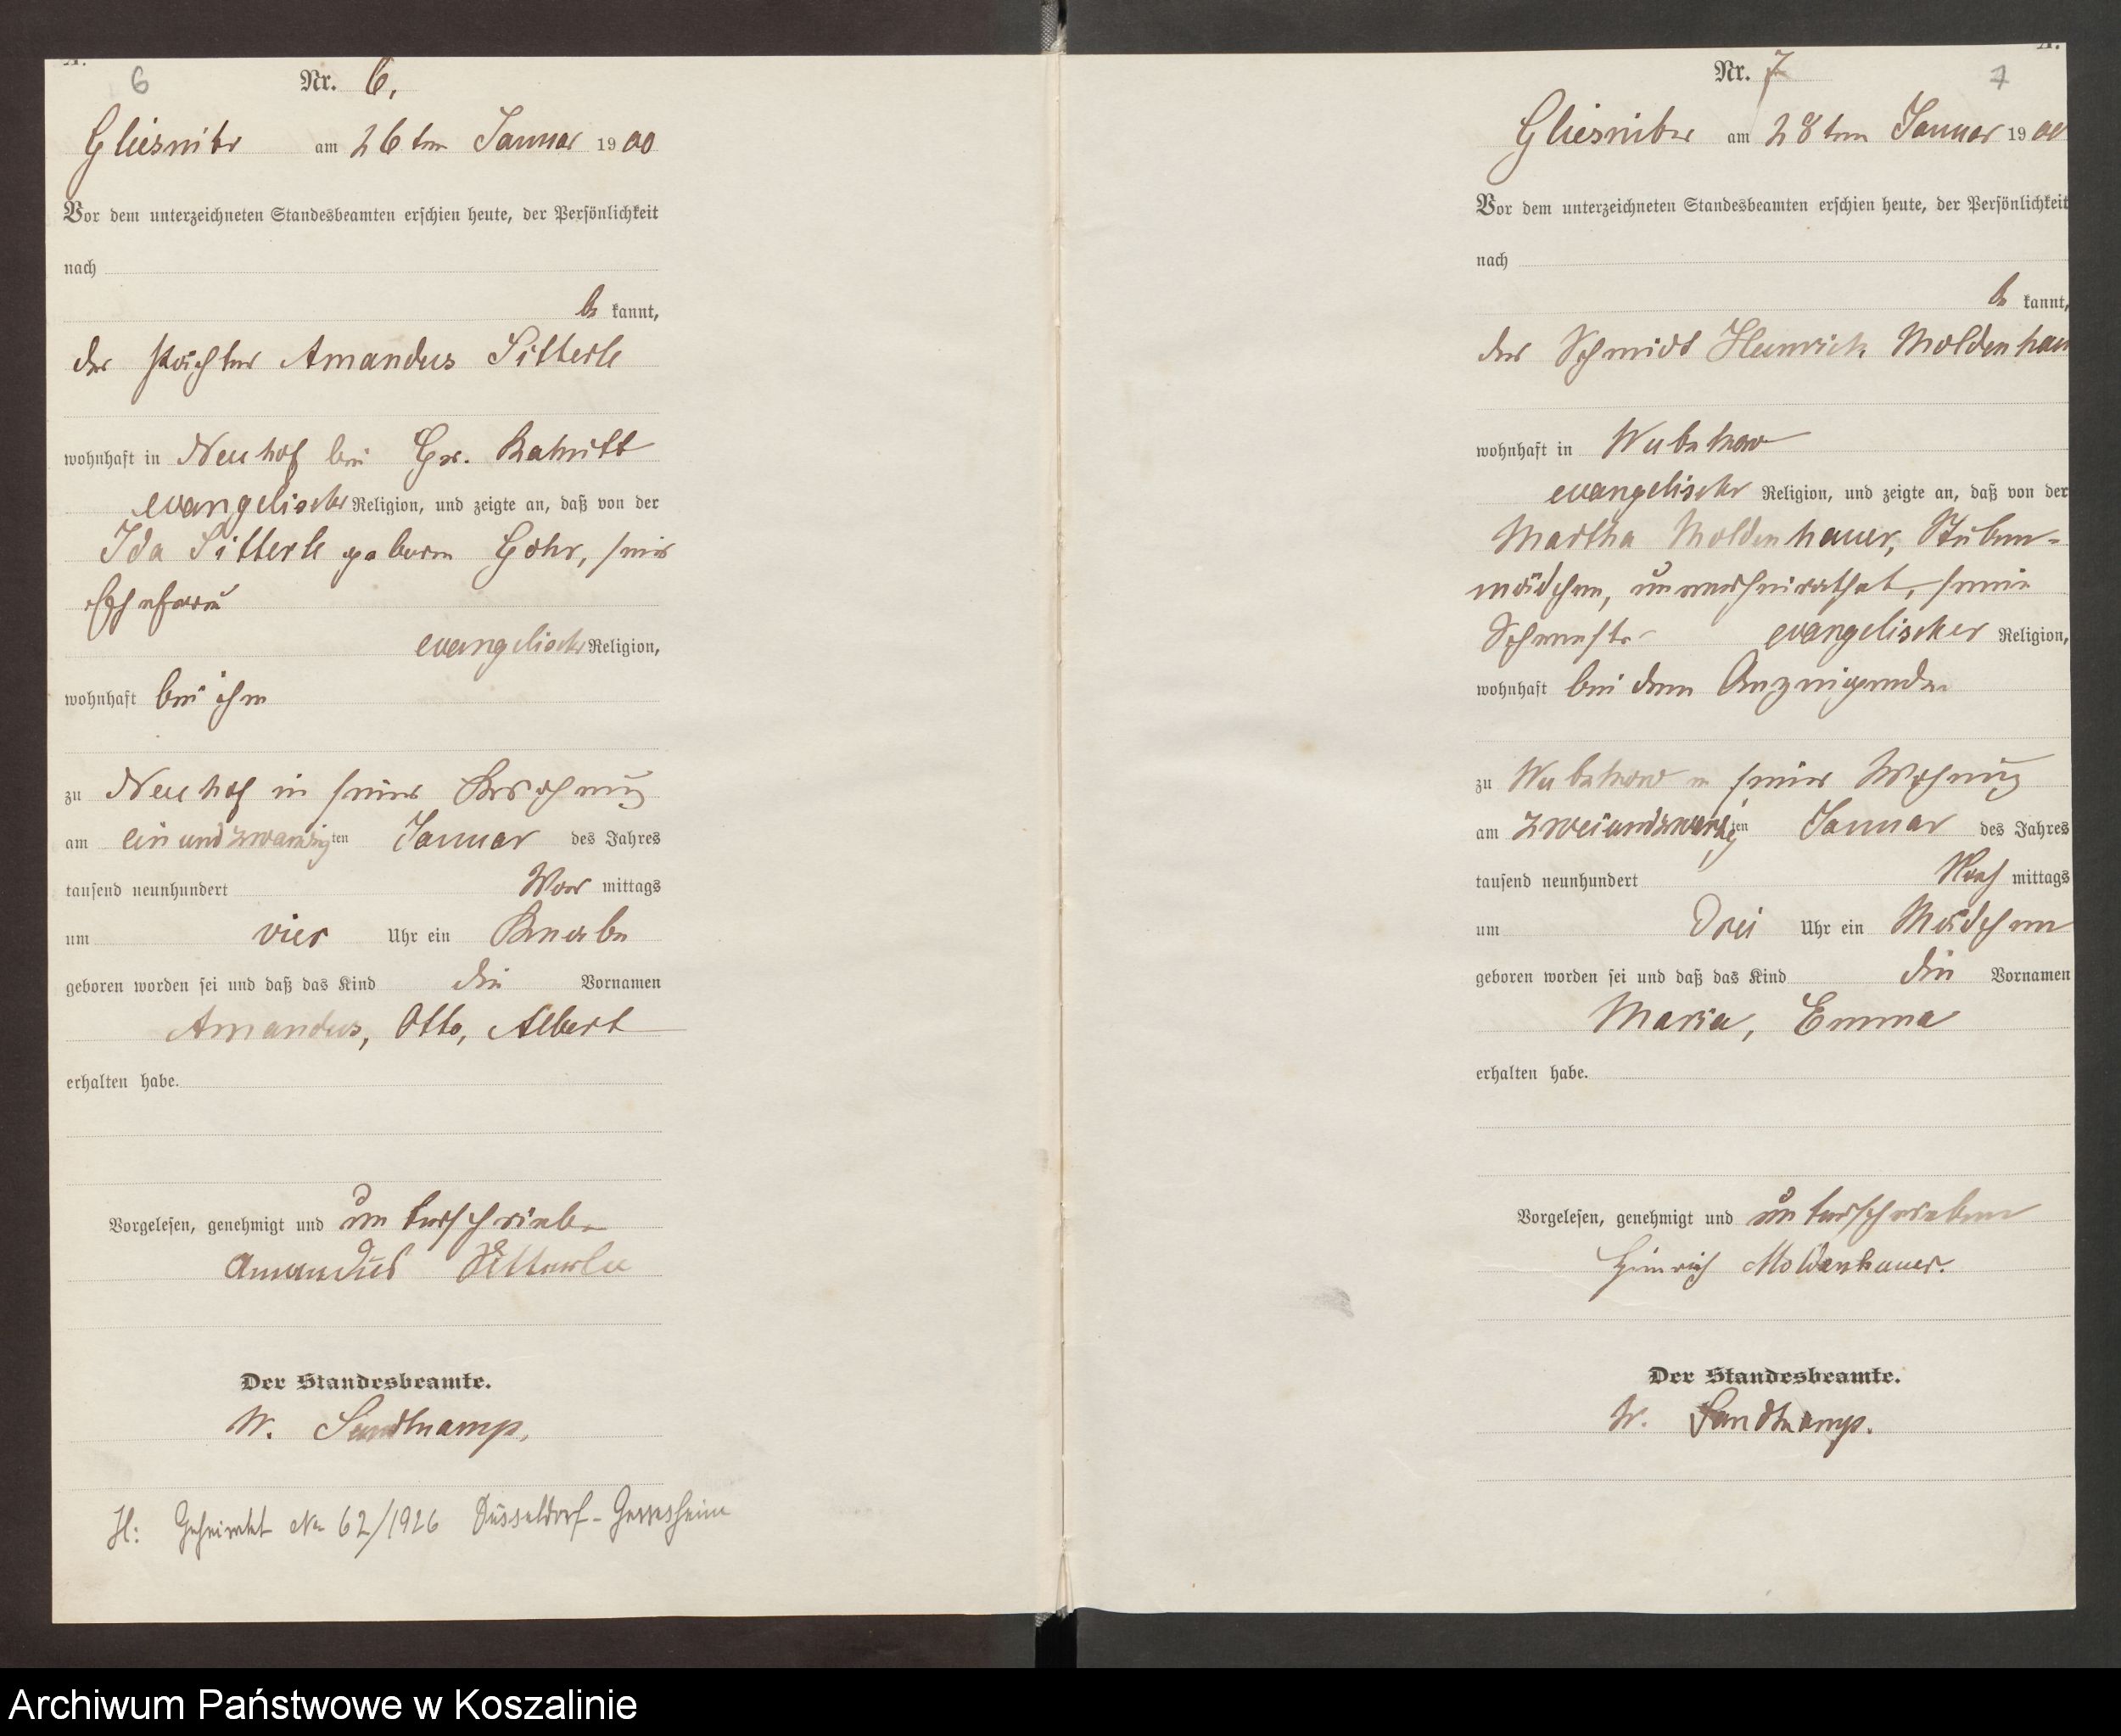 6
Nr. 6.
Gliesnitz am 26ten Januar 1900
Vor dem unterzeichneten Standesbeamten erschien heute, der Persönlichkeit
nach
be kannt,
der Pächter Amandus Sitterle
wohnhaft in Neuhof bei Gr. Rakitt
evangelischer Religion, und zeigte an, daß von der
Ida Sitterle geboren Gohr, seiner
Ehefrau
evangelischer Religion,
wohnhaft bei ihm
zu Neuhof in seiner Wohnung
am einundzwanzigten Januar des Jahres
tausend neunhundert Vor mittags
um vier Uhr ein Knabe
geboren worden sei und daß das Kind die Vornamen
Amandus, Otto, Albert
erhalten habe.
Vorgelesen, genehmigt und unterschrieben
Amandus Sitterle
Der Standesbeamte.
W. Sandkamp.
H: Geheiratet No 62/1926 Düsseldorf-Gerresheim
Nr. 7
7
Gliesnitz am 28ten Januar 1900
Vor dem unterzeichneten Standesbeamten erschien heute, der Persönlichkeit
nach
be kannt,
der Schmidt Heinrich Moldenhau
wohnhaft in
evangelischer Religion, und zeigte an, daß von der
Martha Moldenhauer, Stuben-
mädchen, unverheirathet, seine
Schwester evangelischer Religion,
wohnhaft bei dem Anzeigenden
zu in seiner Wohnung
am zweiundzwanzigten Januar des Jahres
tausend neunhundert Nach mittags
um drei Uhr ein Mädchen
geboren worden sei und daß das Kind die Vornamen
Maria, Emma
erhalten habe.
Vorgelesen, genehmigt und unterschrieben
Heinrich Moldenhauer.
Der Standesbeamte.
W. Sandkamp.
Archiwum Państwowe w Koszalinie